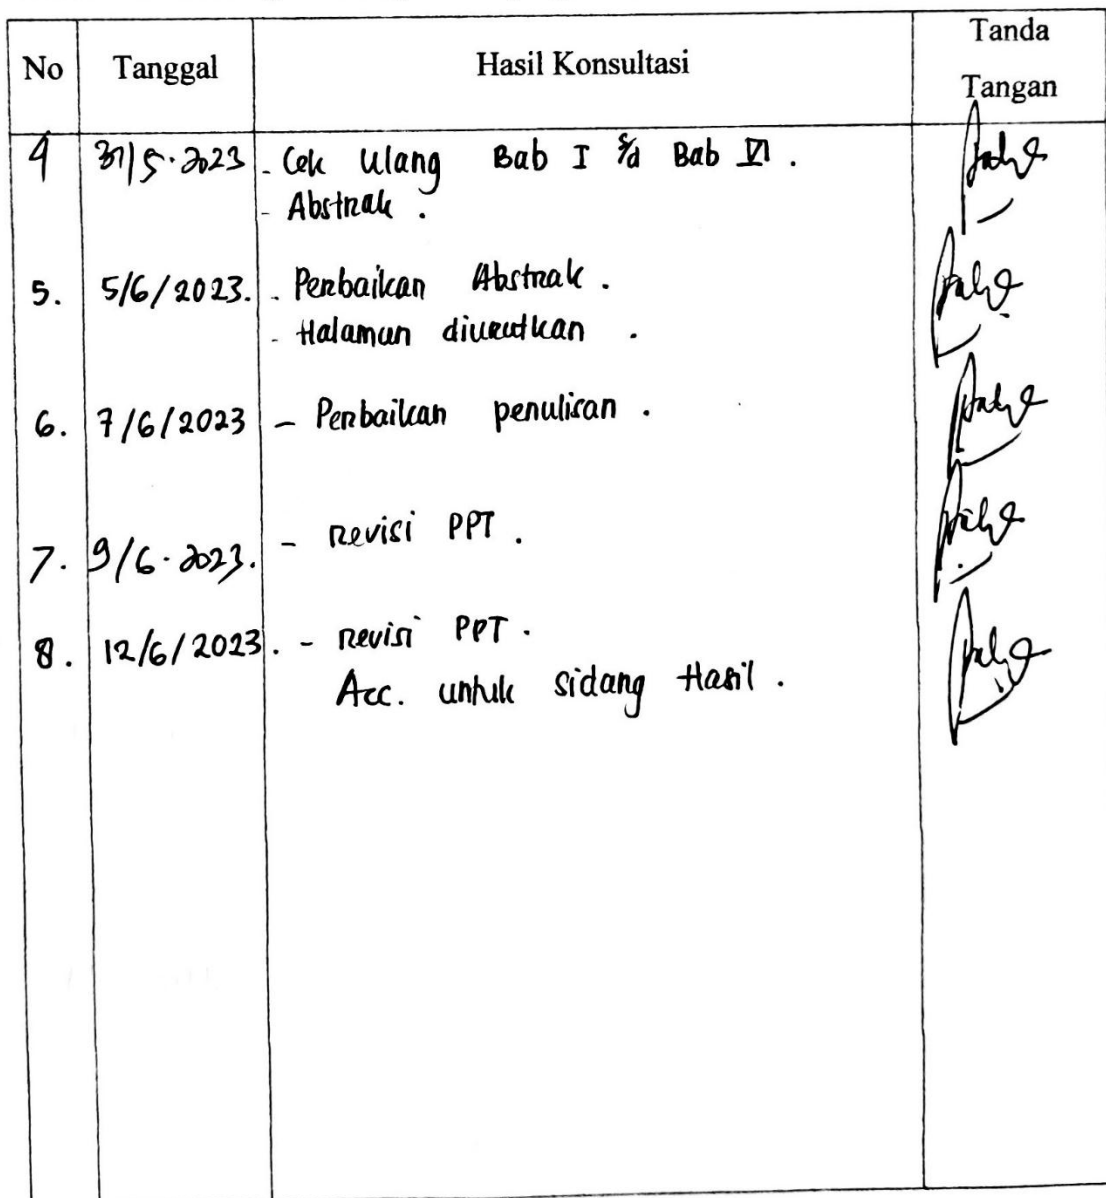 No Tanggal Hasil Konsultasi Tanda Tangan
4 31/5-2023 - Cek Ulang Bab I s/d Bab VI .
- Abstrak .
5. 5/6/2023. - Perbaikan Abstrak .
- Halaman diurutkan .
6. 7/6/2023 - Perbaikan penulisan .
7. 9/6-2023. - revisi PPT .
8. 12/6/2023. - revisi PPT .
Acc. untuk sidang Hasil .